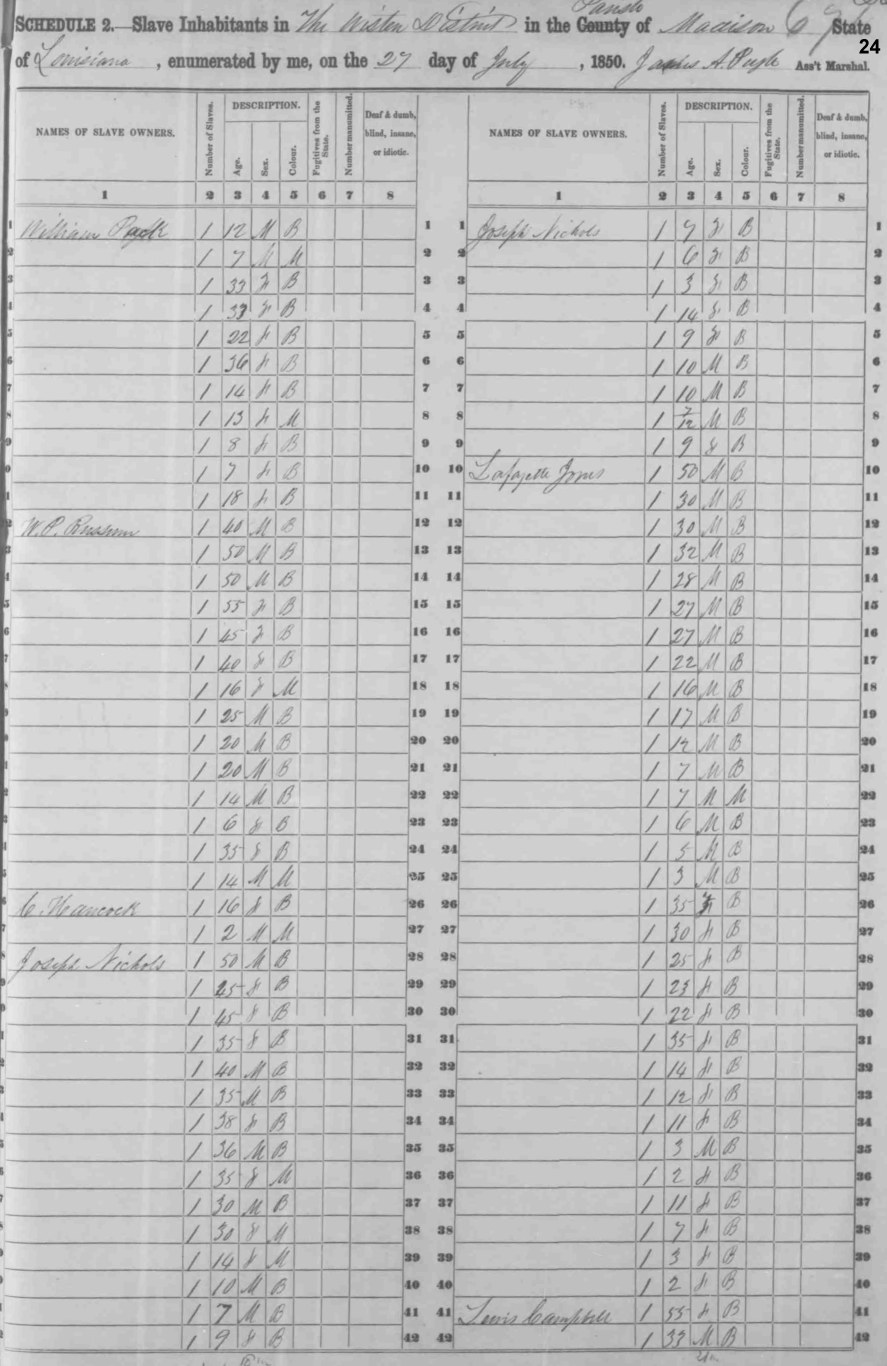 SCHEDULE 2.—Slave Inhabitants in The Western District in the County of Madison State
Parish
24
of Louisiana, enumerated by me, on the 27 day of July, 1850. James A. Pugh Ass't Marshal.
NAMES OF SLAVE OWNERS. Number of Slaves. DESCRIPTION. Age. Sex. Colour. Fugitives from the State. Number manumitted. Deaf & dumb, blind, insane, or idiotic. NAMES OF SLAVE OWNERS. Number of Slaves. DESCRIPTION. Age. Sex. Colour. Fugitives from the State. Number manumitted. Deaf & dumb, blind, insane, or idiotic.
1 2 3 4 5 6 7 8 1 2 3 4 5 6 7 8
1 William 1 12 M B 1 1 Joseph Nichols 1 7 F B 1
2 1 7 M M 2 2 1 6 F B 2
3 1 33 F B 3 3 1 3 F B 3
4 1 33 F B 4 4 1 14 F B 4
5 1 22 F B 5 5 1 9 F B 5
6 1 36 F B 6 6 1 10 M B 6
7 1 14 F B 7 7 1 10 M B 7
8 1 13 F M 8 8 1 7/12 M B 8
9 1 8 F B 9 9 1 9 F B 9
1 7 F B 10 10 Lafayette Jones 1 50 M B 10
1 18 F B 11 11 1 30 M B 11
W. P. 1 40 M B 12 12 1 30 M B 12
1 50 M B 13 13 1 32 M B 13
1 50 M B 14 14 1 28 M B 14
1 55 F B 15 15 1 27 M B 15
1 45 F B 16 16 1 27 M B 16
1 40 F B 17 17 1 22 M B 17
1 16 F M 18 18 1 16 M B 18
1 25 M B 19 19 1 17 M B 19
1 20 M B 20 20 1 12 M B 20
1 20 M B 21 21 1 7 M B 21
1 14 M B 22 22 1 7 M M 22
1 6 F B 23 23 1 6 M B 23
1 35 F B 24 24 1 5 M B 24
1 14 M M 25 25 1 3 M B 25
C. Hancock 1 16 F B 26 26 1 35 F B 26
1 2 M M 27 27 1 30 F B 27
Joseph Nichols 1 50 M B 28 28 1 25 F B 28
1 25 F B 29 29 1 23 F B 29
1 45 F B 30 30 1 22 F B 30
1 35 F B 31 31 1 35 F B 31
1 40 M B 32 32 1 14 F B 32
1 35 M B 33 33 1 12 F B 33
1 38 F B 34 34 1 11 F B 34
1 36 M B 35 35 1 3 M B 35
1 35 F M 36 36 1 2 F B 36
1 30 M B 37 37 1 11 F B 37
1 30 F M 38 38 1 7 F B 38
1 14 F M 39 39 1 3 F B 39
1 10 M B 40 40 1 2 F B 40
1 7 M B 41 41 Lewis Campbell 1 55 F B 41
1 9 F B 42 42 1 33 M B 42